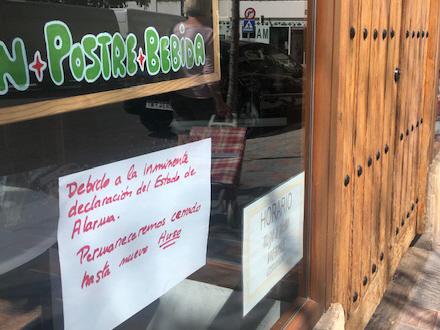 N + POSTRE + BEBIDA
AM
Debido a la inminente
declaración del Estado de
Alarma.
Permaneceremos cerrado
hasta nuevo Aviso
HORARIO